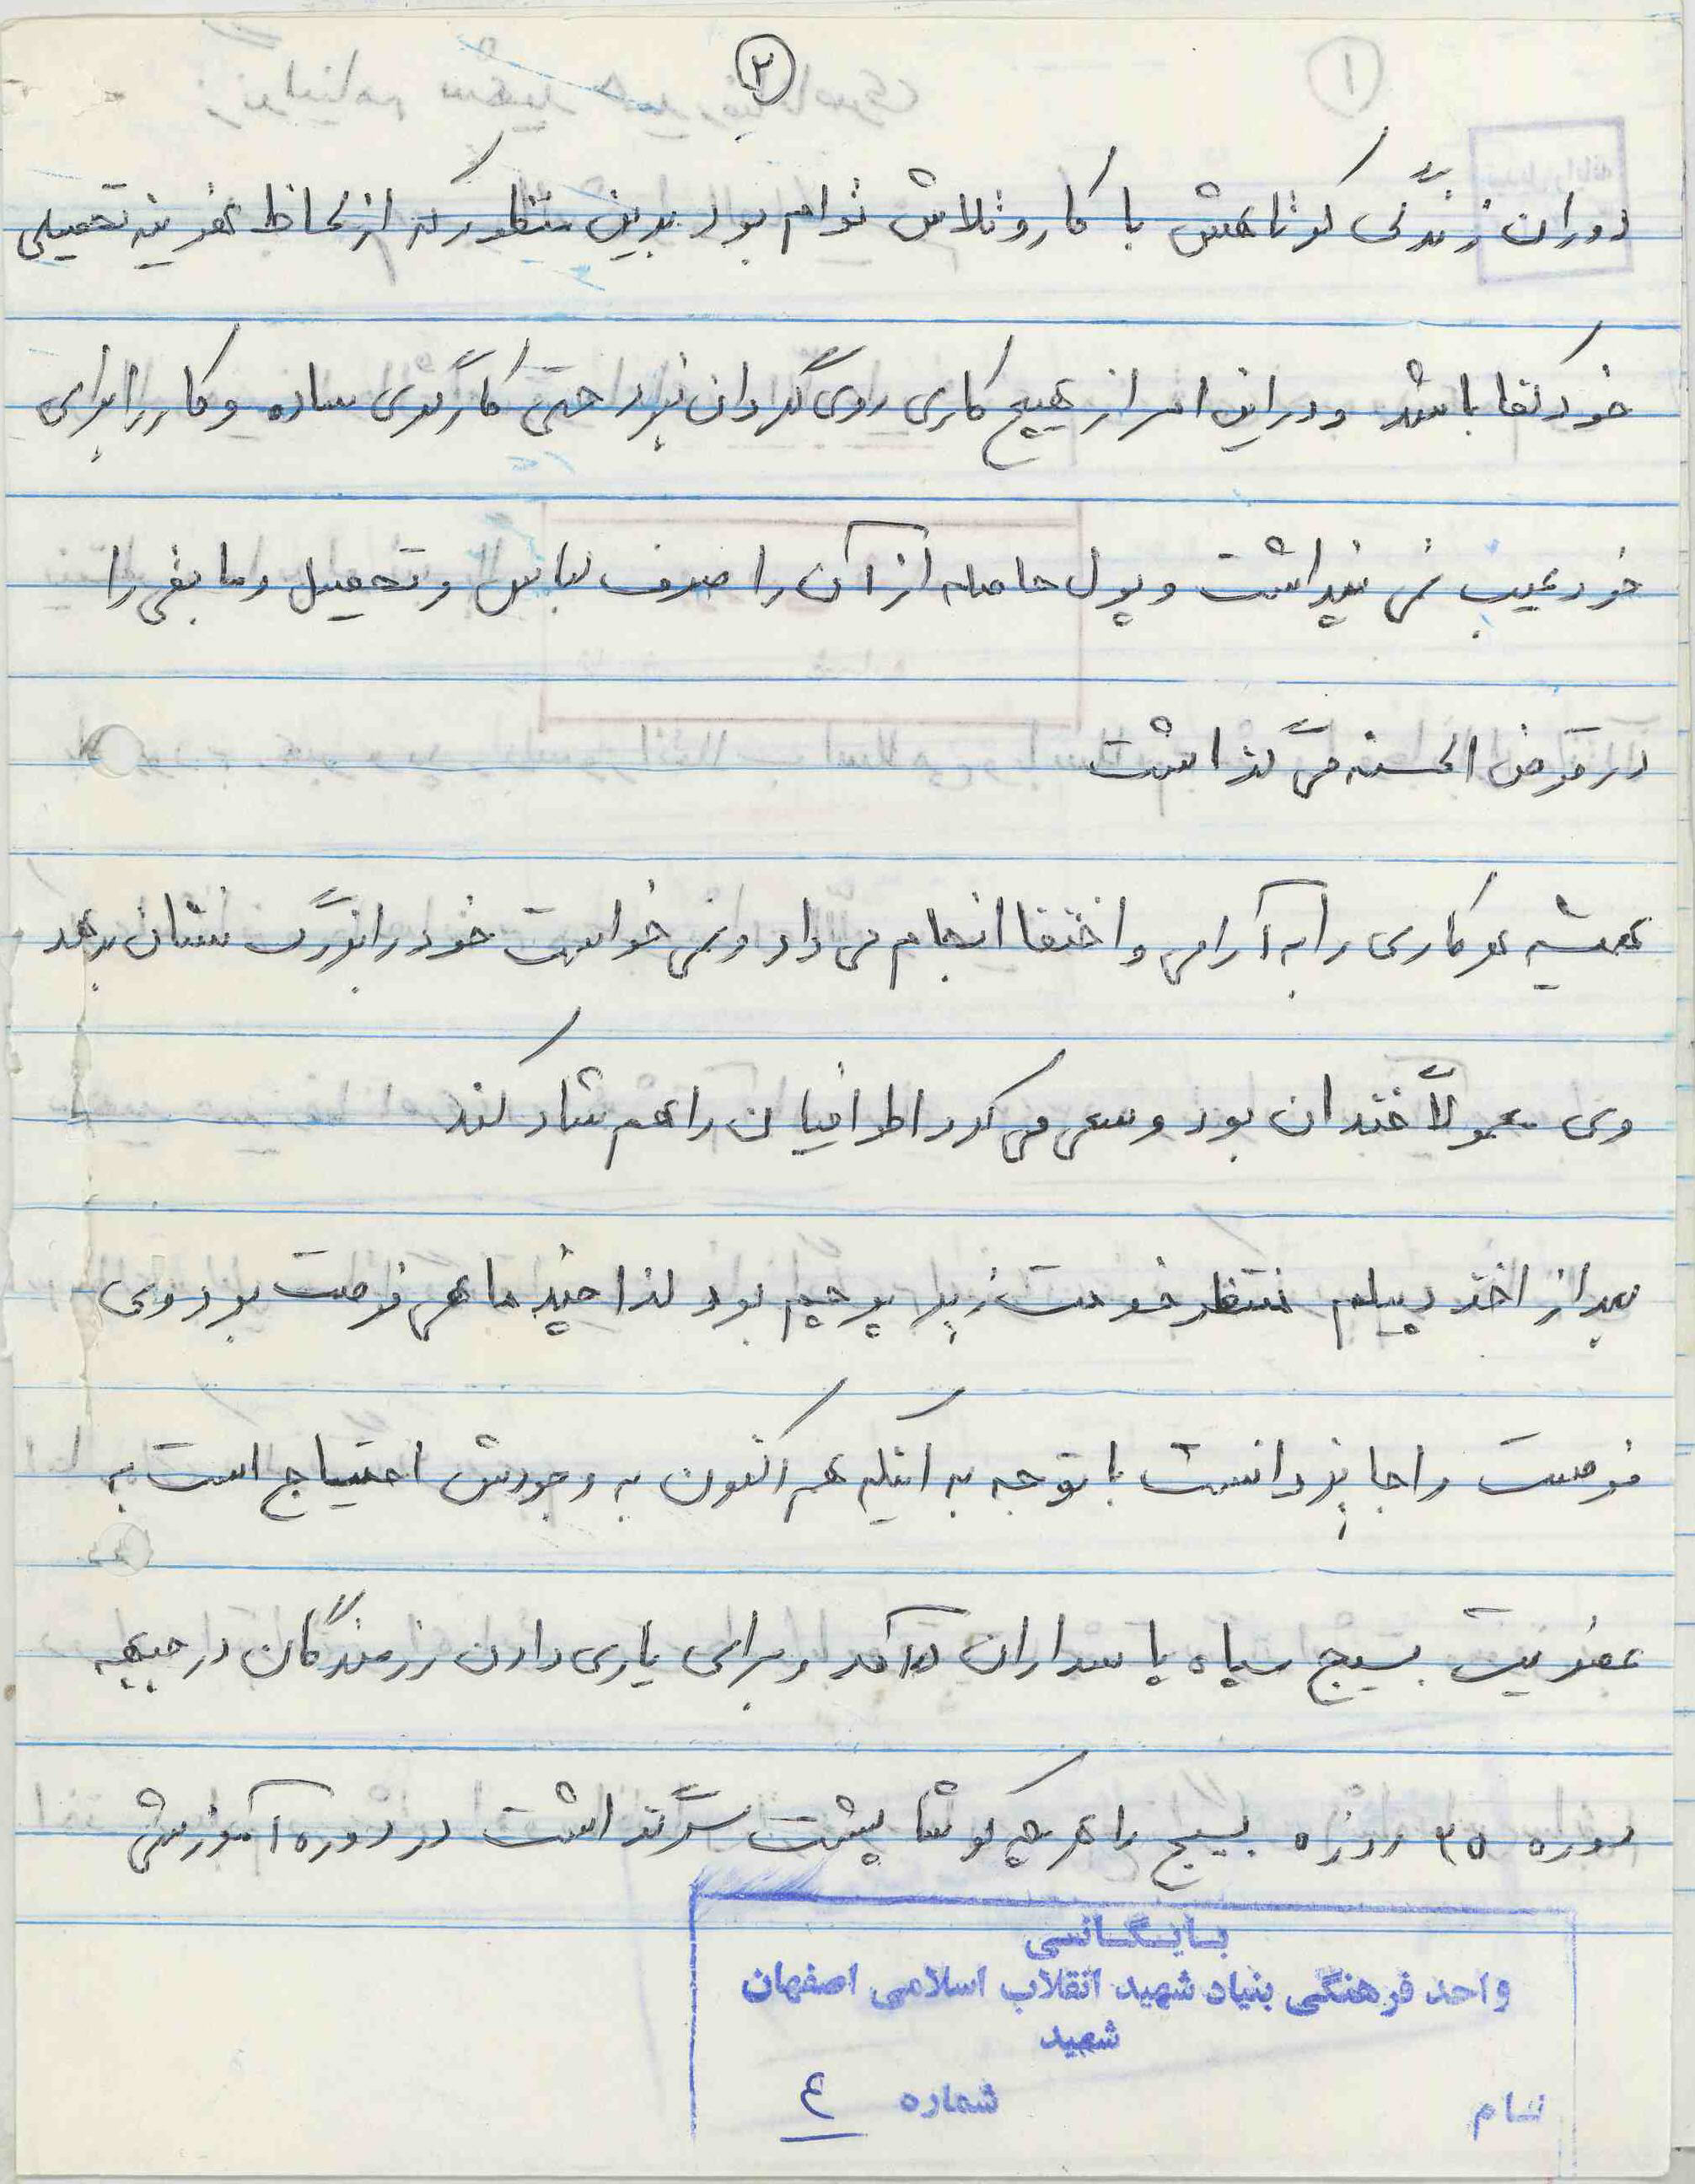 ۲
دوران زندگی کوتاهش با کار و تلاش توام بود بدین منظور که از لحاظ هزینه تحصیلی
خود کفا باشد و در این امر از هیچ کاری روی گردان نبود حتی کارگری ساده و کار را برای
خود عیب نمی پنداشت و پول حاصله از آن را صرف لباس و تحصیل و ما بقی را
در قرض الحسنه می گذاشت
همیشه هر کاری را به آرامی و اختفا انجام می داد و نمی خواست خود را بزرگ نشان بدهد
وی معمولاً خندان بود و سعی می کرد اطرافیان را هم شاد کند
بعد از اخذ دیپلم منتظر خدمت زیر پرچم بود لذا چند ماهی فرصت بود وی
فرصت را جایز دانست با توجه به اینکه هم اکنون به وجودش احتیاج است به
عضویت بسیج سپاه پاسداران درآمد و برای یاری دادن رزمندگان در جبهه
دوره ۲۵ روزه بسیج را هر چه کوشا پشت سر گذاشت در دوره آموزشی
بایگانی
واحد فرهنگی بنیاد شهید انقلاب اسلامی اصفهان
شهید
نام شماره ۴